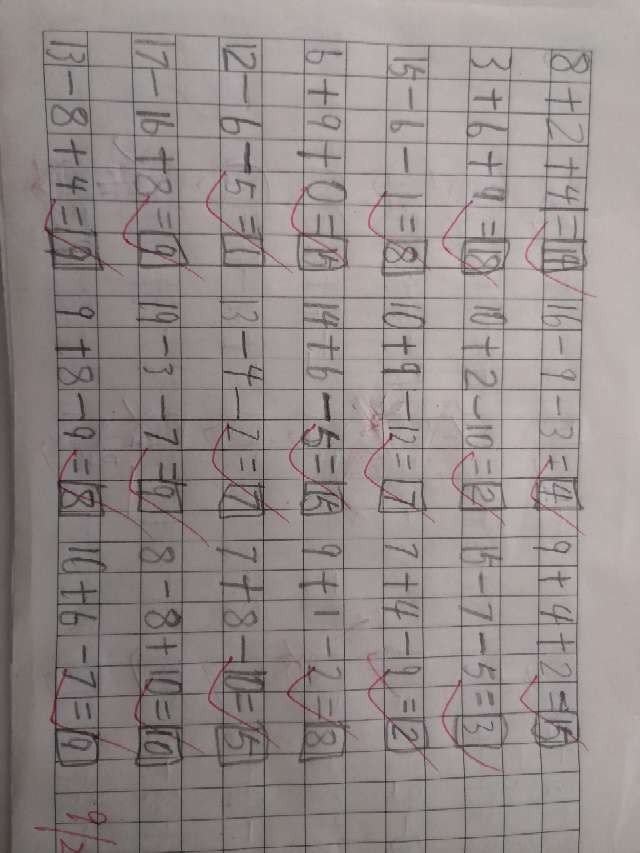 8+2+4=14 16-9-3=4 9+4+2=15
3+6+9=18 10+2-10=2 15-7-5=3
15-6-1=8 10+9-12=7 7+4-9=2
6+9+0=15 14+6-5=15 9+1-2=8
12-6-5=1 13-4-2=7 7+8-10=5
17-16+8=9 19-3-7=9 8-8+10=10
13-8+4=9 9+8-9=8 10+6-7=9